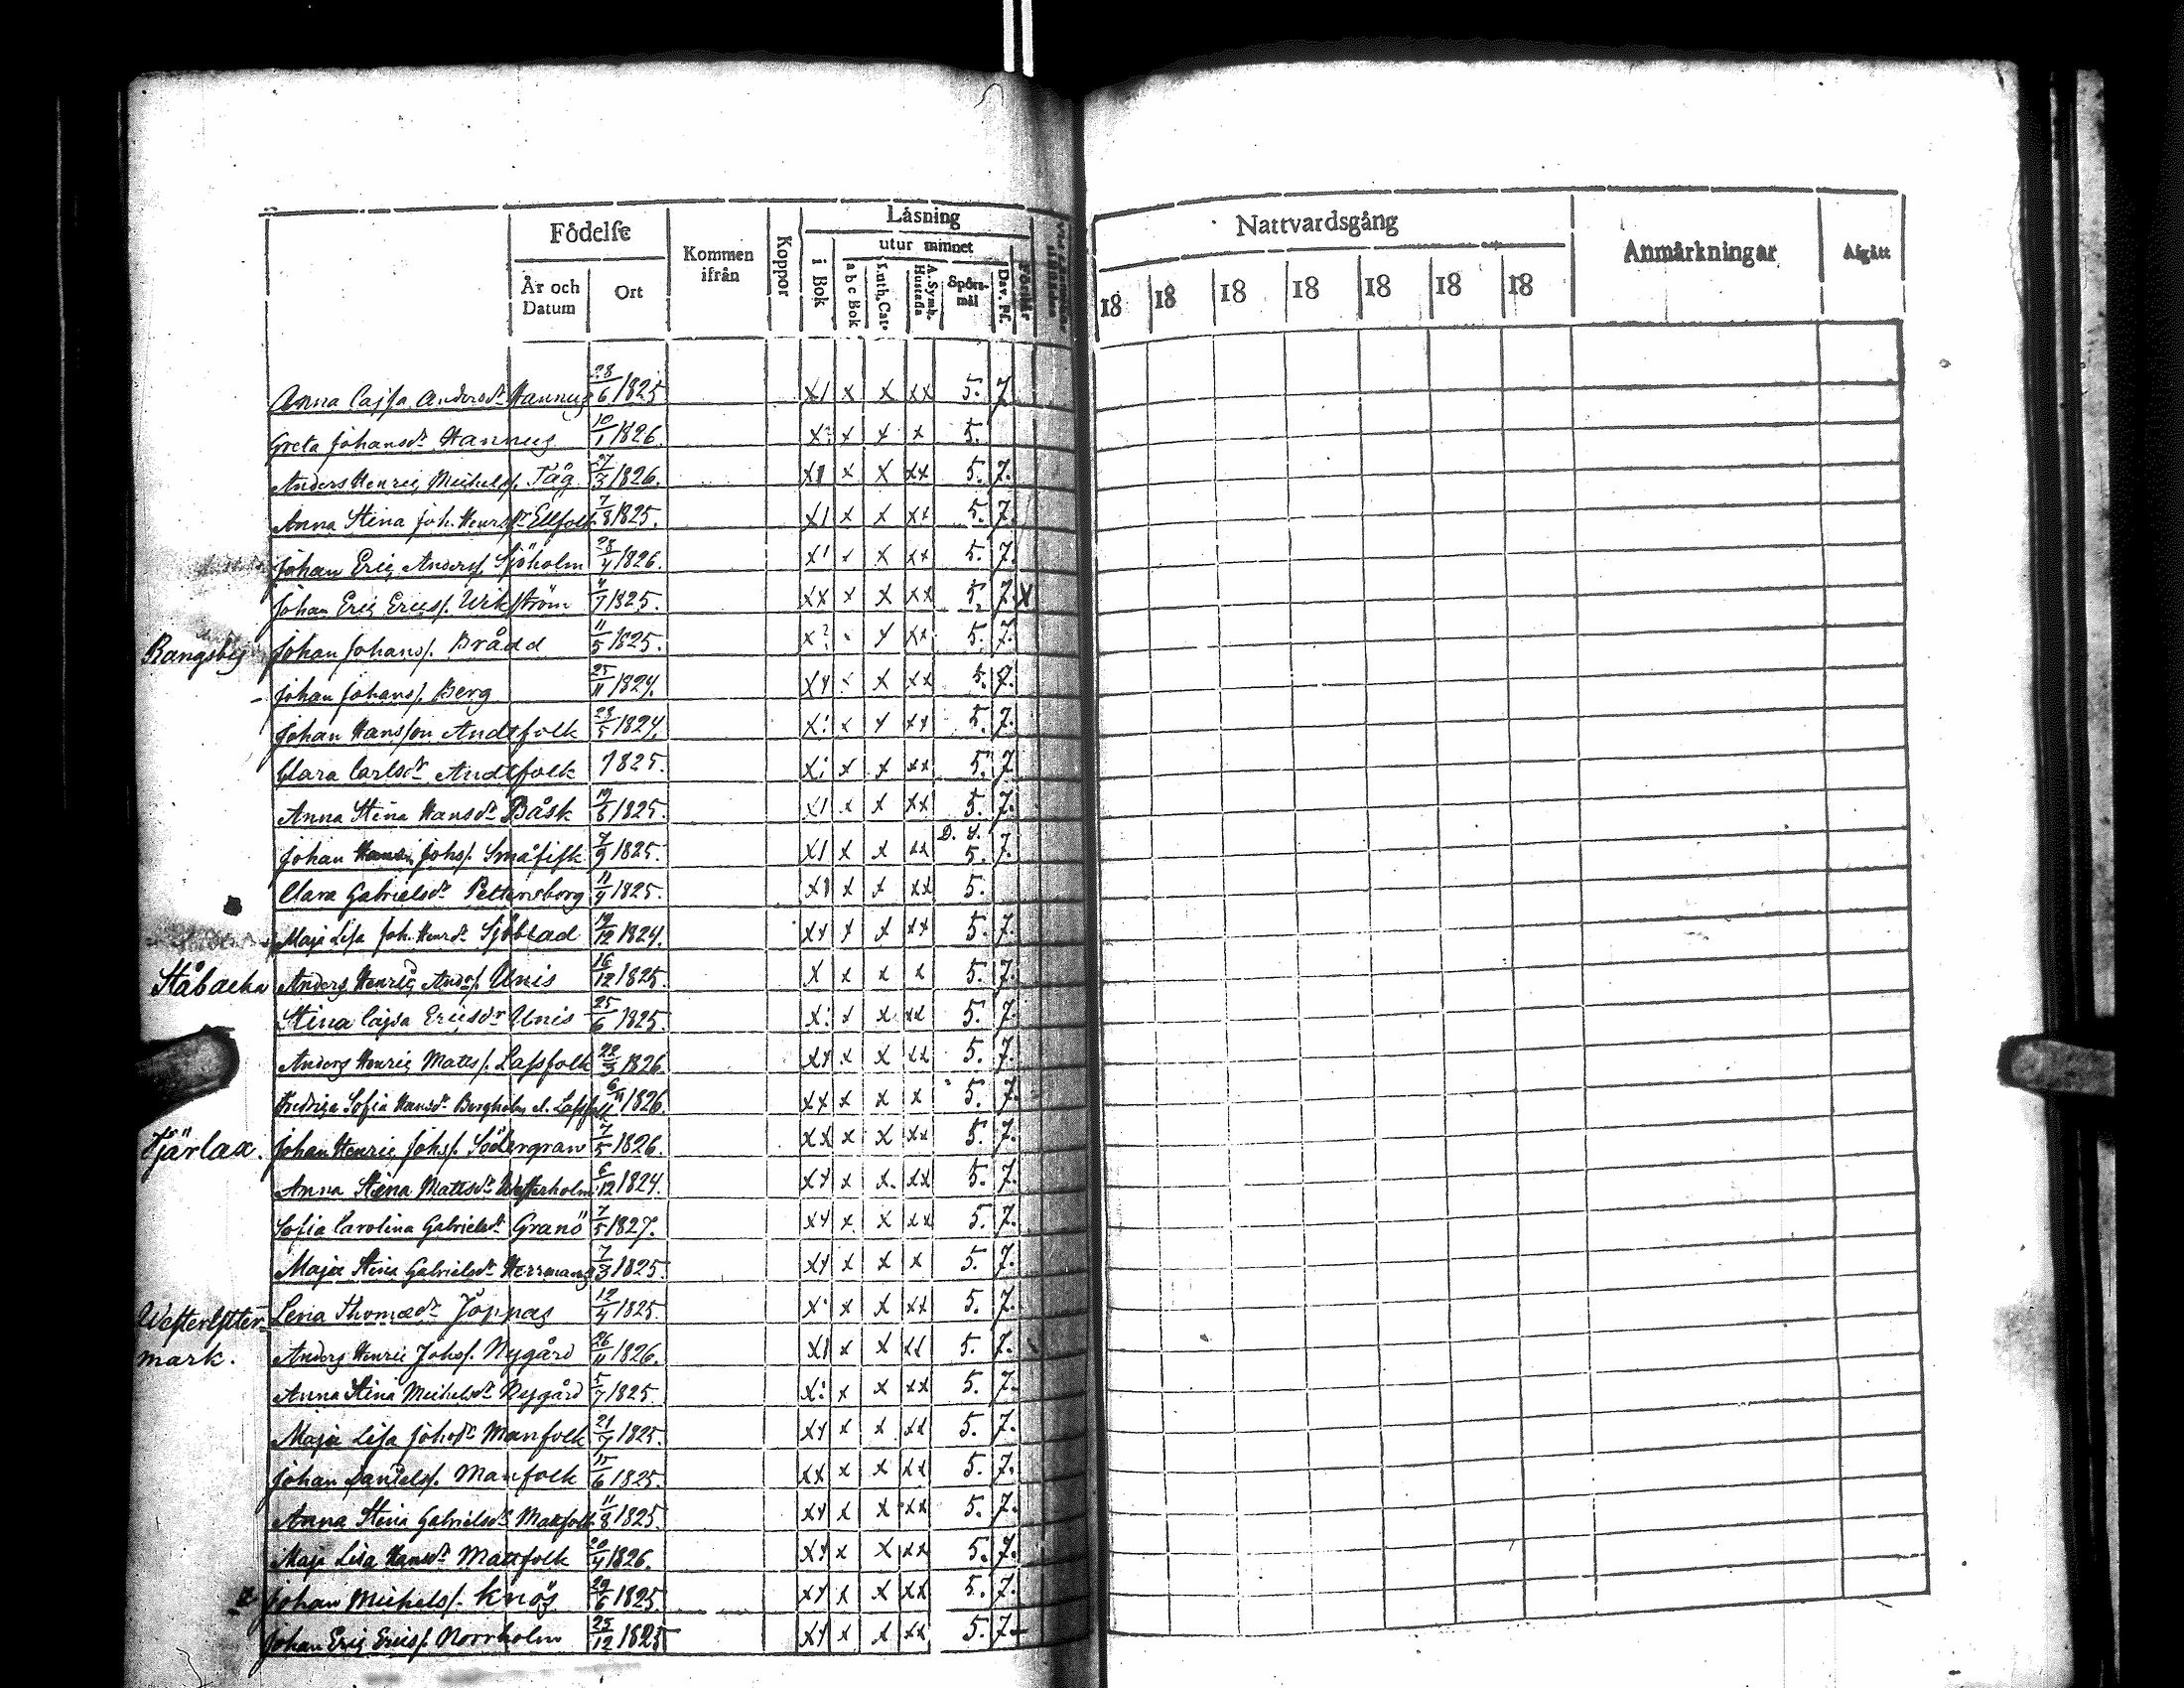 Födelse
År och Datum
Ort
Kommen ifrån
Koppor
Läsning
i Bok
utur minnet
a b c Bok
Luth. Cat.
A. Symb. Hustafla
Spörsmål
Dav. Ps.
Förhör
Nattvardsgång
18 18 18 18 18 18 18
Anmärkningar
Afgått
Anna Cajsa Andersdr Hannus 28/6 1825 x1 x x xx 5. 7
Greta Johansdr Hannus 10/1 1826. x: x x x 5.
Anders Henric Michelss. Tåg 27/3 1826. x1 x x xx 5. 7.
Anna Stina Joh. Henrsdr Ellfolk 7/8 1825. x1 x x xx 5. 7.
Johan Eric Anderss. Sjöholm 28/4 1826. x! x x xx 5. 7.
Johan Eric Ericss. Wikström 4/7 1825. xx x x xx 5. 7. X
Rangsby Johan Johanss. Brådd 11/5 1825. x? x x xx 5. 7.
Johan Johanss. Berg 25/11 1824. xx x x xx 5. 7.
Johan Hansson Andtfolk 23/5 1824. x: x x xx 5. 7.
Clara Carlsdr Andtfolk 1825. x: x x xx 5. 7
Anna Stina Hansdr Båsk 19/6 1825. x1 x x xx 5. 7.
Johan Johss. Småfisk 7/9 1825. x1 x x xx 5. 7.
Clara Gabrielsdr Pettersborg 11/4 1825. x1 x x xx 5.
Maja Lisa Joh. Henrsdr Sjöblad 19/12 1824. xx x x xx 5. 7.
Ståbacka Anders Henric Andss. Unis 16/12 1825. x x x x 5. 7.
Stina Cajsa Ericsdr Unis 25/6 1825. x: x x xx 5. 7.
Anders Henric Matts s. Lassfolk 22/3 1826. xx x x xx 5. 7.
Fredrica Sofia Hansdr Bergholm el. Lassfolk 6/11 1826. xx x x x 5. 7.
Tjärlax. Johan Henric Johss. Södergran 7/5 1826. xx x x xx 5. 7.
Anna Stina Mattsdr Westerholm 6/12 1824. xx x x xx 5. 7.
Sofia Carolina Gabrielsdr Granö 7/5 1827. xx x x xx 5. 7.
Maja Stina Gabrielsdr Herrmans 7/3 1825. xx x x x 5. 7.
Westerytter- Lena Thomædr Joppas 12/4 1825. x. x x xx 5. 7.
mark. Anders Henric Johss. Nygård 26/11 1826. x1 x x xx 5. 7.
Anna Stina Michelsdr Nygård 5/7 1825. x: x x xx 5. 7.
Maja Lisa Johsdr Manfolk 21/7 1825. xx x x xx 5. 7.
Johan Danielss. Manfolk 15/6 1825. xx x x xx 5. 7.
Anna Stina Gabrielsdr Mattfolk 11/8 1825. xx x x xx 5. 7.
Maja Lisa Hansdr Mattfolk 20/4 1826. xx x x xx 5. 7.
Johan Michelss. Knös 29/6 1825. xx x x xx 5. 7.
Johan Eric Ericss. Norrholm 25/12 1825 xx x x xx 5. 7.